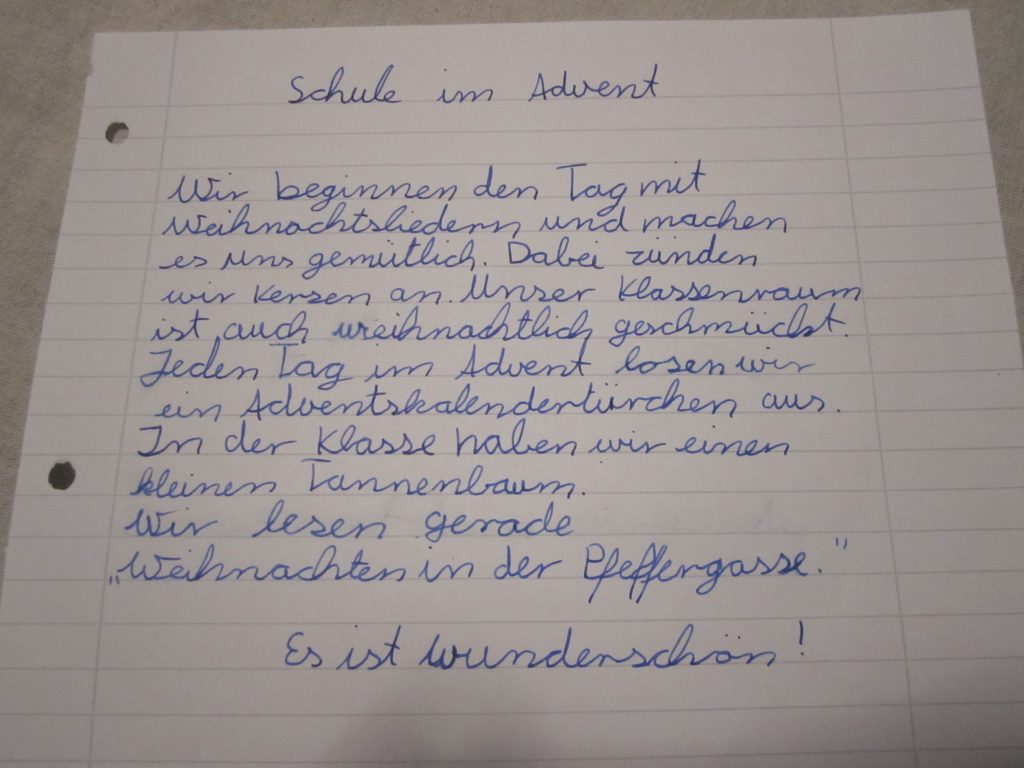 Schule im Advent
Wir beginnen den Tag mit
Weihnachtsliedern und machen
es uns gemütlich. Dabei zünden
wir Kerzen an. Unser Klassenraum
ist auch weihnachtlich geschmückt.
Jeden Tag im Advent losen wir
ein Adventskalendertürchen aus.
In der Klasse haben wir einen
kleinen Tannenbaum.
Wir lesen gerade
„Weihnachten in der Pfeffergasse."
Es ist wunderschön!